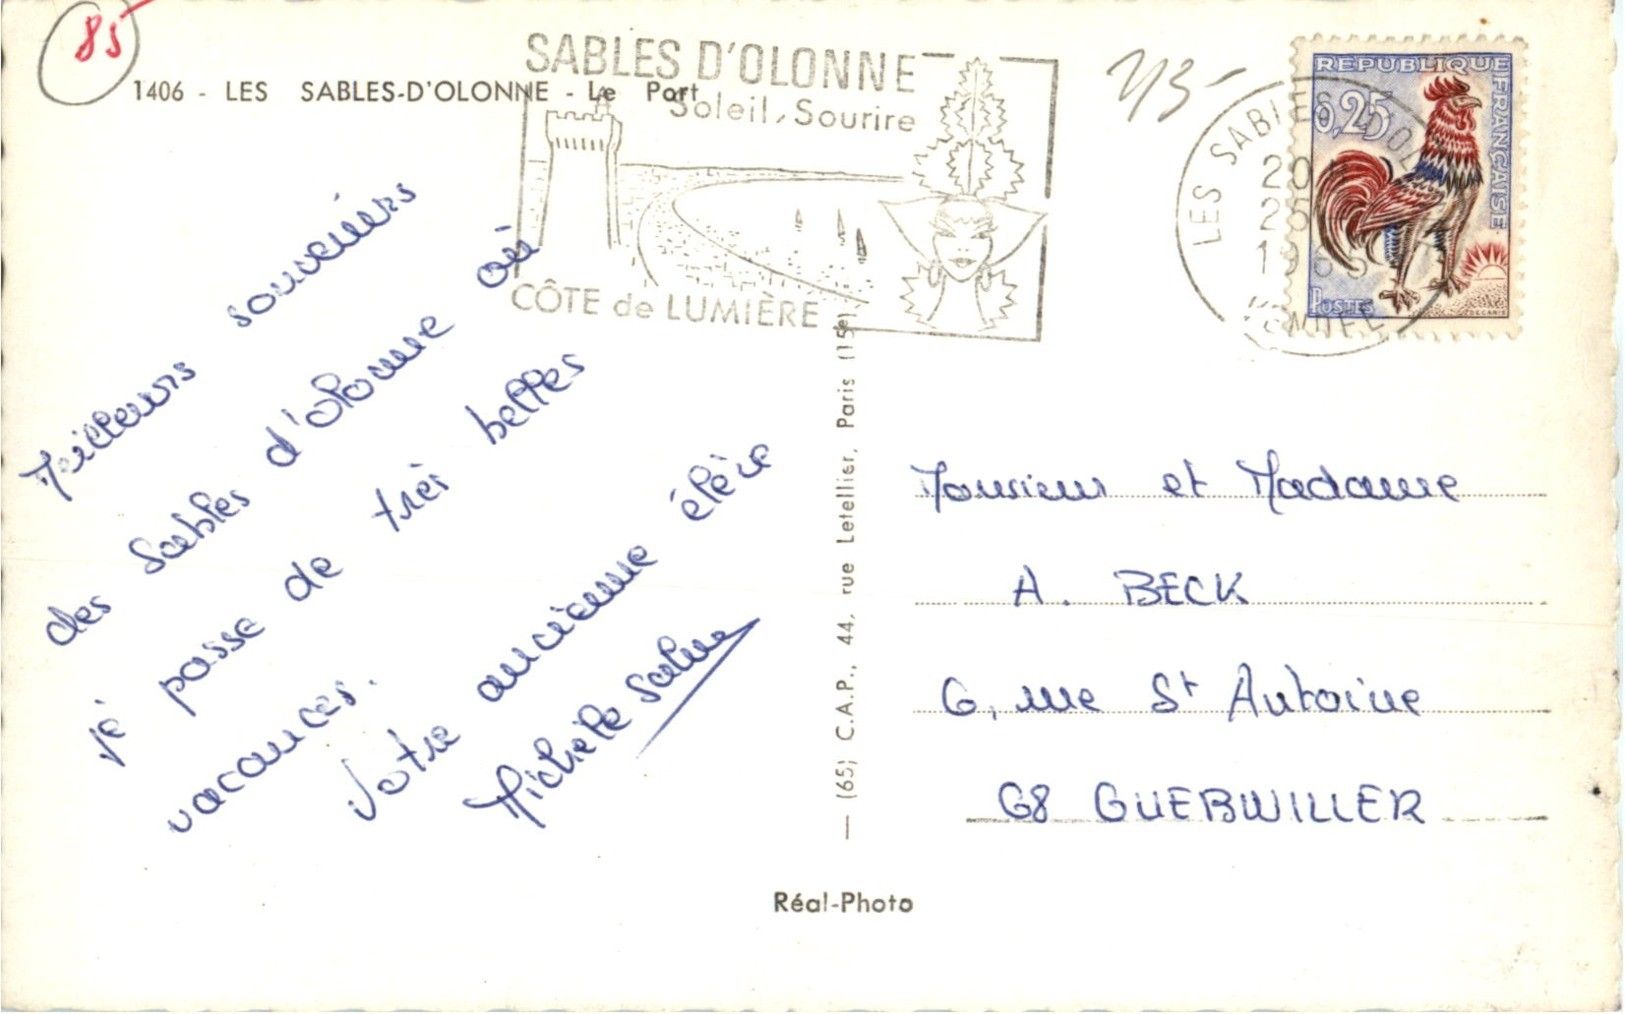 85
1406 - LES SABLES-D'OLONNE - Le Port
SABLES D'OLONNE
Soleil, Sourire
CÔTE de LUMIÈRE
LES SABLES D'OL
20
25
196
VENDEE
REPUBLIQUE FRANÇAISE
0,25
POSTES
DECARIS
Meilleurs souvenirs
des Sables d'Olonne où
je passe de très belles
vacances.
Votre ancienne élève
Michèle
— (65) C.A.P., 44, rue Letellier, Paris (15e)
Monsieur et Madame
A. BECK
6, rue St Antoine
68 GUEBWILLER
Réal-Photo